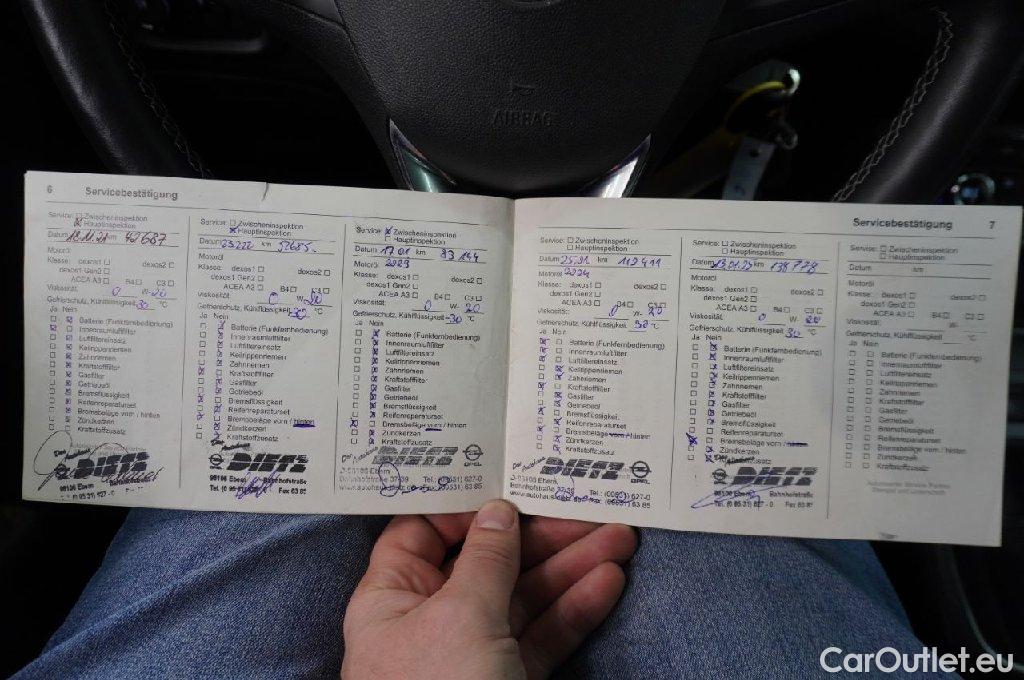 AIRBAG
6 Servicebestätigung
Service: Zwischeninspektion
Hauptinspektion
Datum 18.11.21 km 42687
Motoröl
Klasse: dexos1
dexos1 Gen2
ACEA A3
Viskosität 0 W- 20
Gefrierschutz, Kühlflüssigkeit -30 °C
Ja Nein
Batterie (Funkfernbedienung)
Innenraumluftfilter
Luftfiltereinsatz
Keilrippenriemen
Zahnriemen
Kraftstofffilter
Gasfilter
Getriebeöl
Bremsflüssigkeit
Reifenreparaturset
Bremsbeläge vorn / hinten
Zündkerzen
Kraftstoffzusatz
Das Autohaus
DIETZ
96106 Ebern
Service: Zwischeninspektion
Hauptinspektion
Datum km 52685
Motoröl
Klasse: dexos1 dexos2
dexos1 Gen2
ACEA A3 B4 C3
Viskosität 0 W- 20
Gefrierschutz, Kühlflüssigkeit -30 °C
Ja Nein
Batterie (Funkfernbedienung)
Innenraumluftfilter
Luftfiltereinsatz
Keilrippenriemen
Zahnriemen
Kraftstofffilter
Gasfilter
Getriebeöl
Bremsflüssigkeit
Reifenreparaturset
Bremsbeläge vorn / hinten
Zündkerzen
Kraftstoffzusatz
Das Autohaus
DIETZ
96106 Ebern Bahnhofstraße
Tel. (0 95 31) 627 - 0 Fax 63 87
Service: Zwischeninspektion
Hauptinspektion
Datum 17.01 km 83144
Motoröl 2023
Klasse: dexos1 dexos2
dexos1 Gen2
ACEA A3 B4 C3
Viskosität 0 W- 20
Gefrierschutz, Kühlflüssigkeit -30 °C
Ja Nein
Batterie (Funkfernbedienung)
Innenraumluftfilter
Luftfiltereinsatz
Keilrippenriemen
Zahnriemen
Kraftstofffilter
Gasfilter
Getriebeöl
Bremsflüssigkeit
Reifenreparaturset
Bremsbeläge vorn / hinten
Zündkerzen
Kraftstoffzusatz
Das Autohaus
DIETZ OPEL
Servicebestätigung 7
Service: Zwischeninspektion
Hauptinspektion
Datum 25.01. km 112411
Motoröl 2024
Klasse: dexos1 dexos2
dexos1 Gen2
ACEA A3 B4 C3
Viskosität 0 W- 20
Gefrierschutz, Kühlflüssigkeit 30 °C
Ja Nein
Batterie (Funkfernbedienung)
Innenraumluftfilter
Luftfiltereinsatz
Keilrippenriemen
Zahnriemen
Kraftstofffilter
Gasfilter
Getriebeöl
Bremsflüssigkeit
Reifenreparaturset
Bremsbeläge vorn / hinten
Zündkerzen
Kraftstoffzusatz
Das Autohaus
DIETZ OPEL
Service: Zwischeninspektion
Hauptinspektion
Datum 13.01.25 km 138778
Motoröl
Klasse: dexos1 dexos2
dexos1 Gen2
ACEA A3 B4 C3
Viskosität 0 W- 20
Gefrierschutz, Kühlflüssigkeit 30 °C
Ja Nein
Batterie (Funkfernbedienung)
Innenraumluftfilter
Luftfiltereinsatz
Keilrippenriemen
Zahnriemen
Kraftstofffilter
Gasfilter
Getriebeöl
Bremsflüssigkeit
Reifenreparaturset
Bremsbeläge vorn
Zündkerzen
Das Autohaus
DIETZ
96106 Ebern Bahnhofstraße
Tel. (0 95 31) 627 - 0 Fax 63 87
Service: Zwischeninspektion
Hauptinspektion
Datum km
Motoröl
Klasse: dexos1 dexos2
dexos1 Gen2
ACEA A3 B4 C3
Viskosität W-
Gefrierschutz, Kühlflüssigkeit °C
Ja Nein
Batterie (Funkfernbedienung)
Innenraumluftfilter
Luftfiltereinsatz
Keilrippenriemen
Zahnriemen
Kraftstofffilter
Gasfilter
Getriebeöl
Bremsflüssigkeit
Reifenreparaturset
Bremsbeläge vorn / hinten
Zündkerzen
Kraftstoffzusatz
Autorisierter Service Partner
Stempel und Unterschrift
CarOutlet.eu